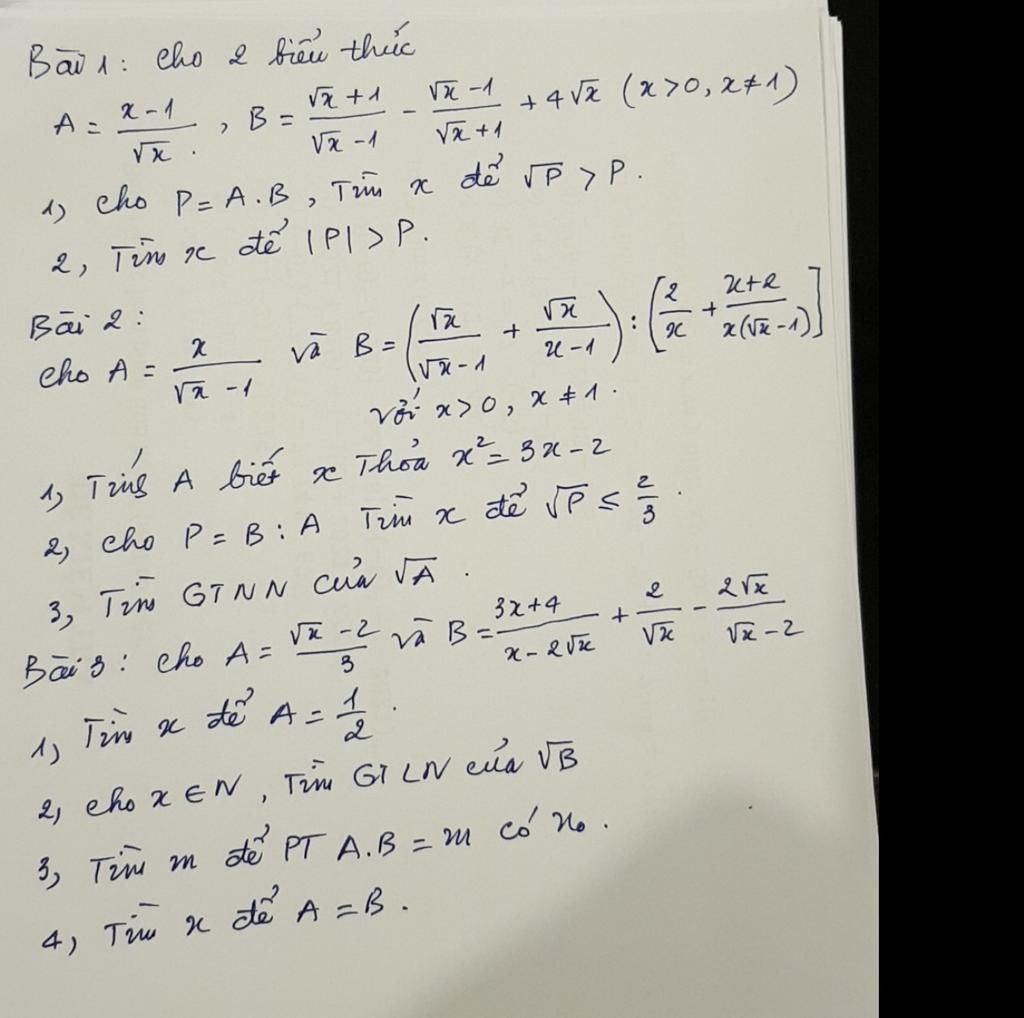 Bài 1: cho 2 biểu thức
A = (x-1)/√x . , B = (√x+1)/(√x-1) - (√x-1)/(√x+1) + 4√x (x>0, x≠1)
1, cho P = A.B, Tìm x để √P > P.
2, Tìm x để |P| > P.
Bài 2:
cho A = x/(√x-1) và B = (√x/(√x-1) + √x/(x-1)) : [2/x + (x+2)/(x(√x-1))]
với x>0, x≠1.
1, Tính A biết x Thỏa x² = 3x-2
2, cho P = B : A Tìm x để √P ≤ 2/3.
3, Tìm GTNN của √A.
Bài 3: cho A = (√x-2)/3 và B = (3x+4)/(x-2√x) + 2/√x - 2√x/(√x-2)
1, Tìm x để A = 1/2.
2, cho x ∈ N, Tìm GTLN của √B
3, Tìm m để PT A.B = m có no.
4, Tìm x để A = B.